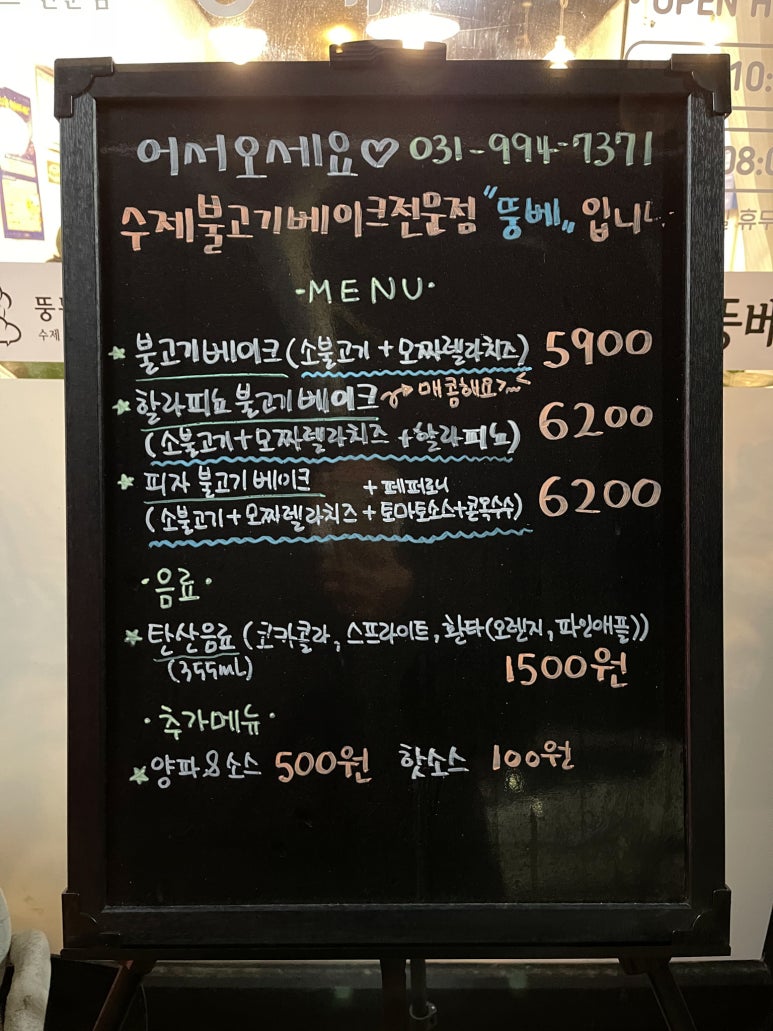 OPEN H
10:
08:0
휴무
어서오세요♡ 031-994-7371
수제불고기베이크전문점 "뚱베" 입니
·MENU·
뚱
수제
뚱베
★ 불고기베이크 (소불고기 + 모짜렐라치즈) 5900
★ 할라피뇨 불고기베이크 → 매콤해요~
(소불고기+모짜렐라치즈 +할라피뇨) 6200
★ 피자 불고기베이크 +페퍼로니
(소불고기+모짜렐라치즈+토마토소스+콘옥수수) 6200
·음료·
★ 탄산음료 (코카콜라, 스프라이트, 환타(오렌지, 파인애플))
(355mL) 1500원
·추가메뉴·
★ 양파&소스 500원 핫소스 100원